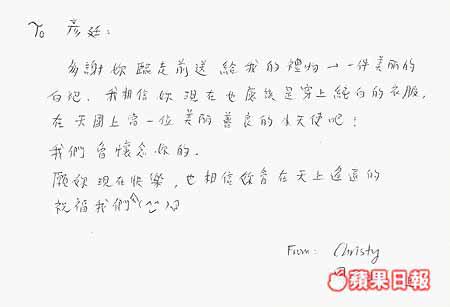 To 彥廷:
多謝妳臨走前送給我的禮物→一件美丽的
白袍. 我相信妳現在也應該是穿上純白的衣服,
在天國上當一位美丽善良的小天使吧!
我們會懷念你的.
願妳現在快樂, 也相信妳會在天上遙遠的
祝福我們^(^^)
From: Christy
蘋果日報